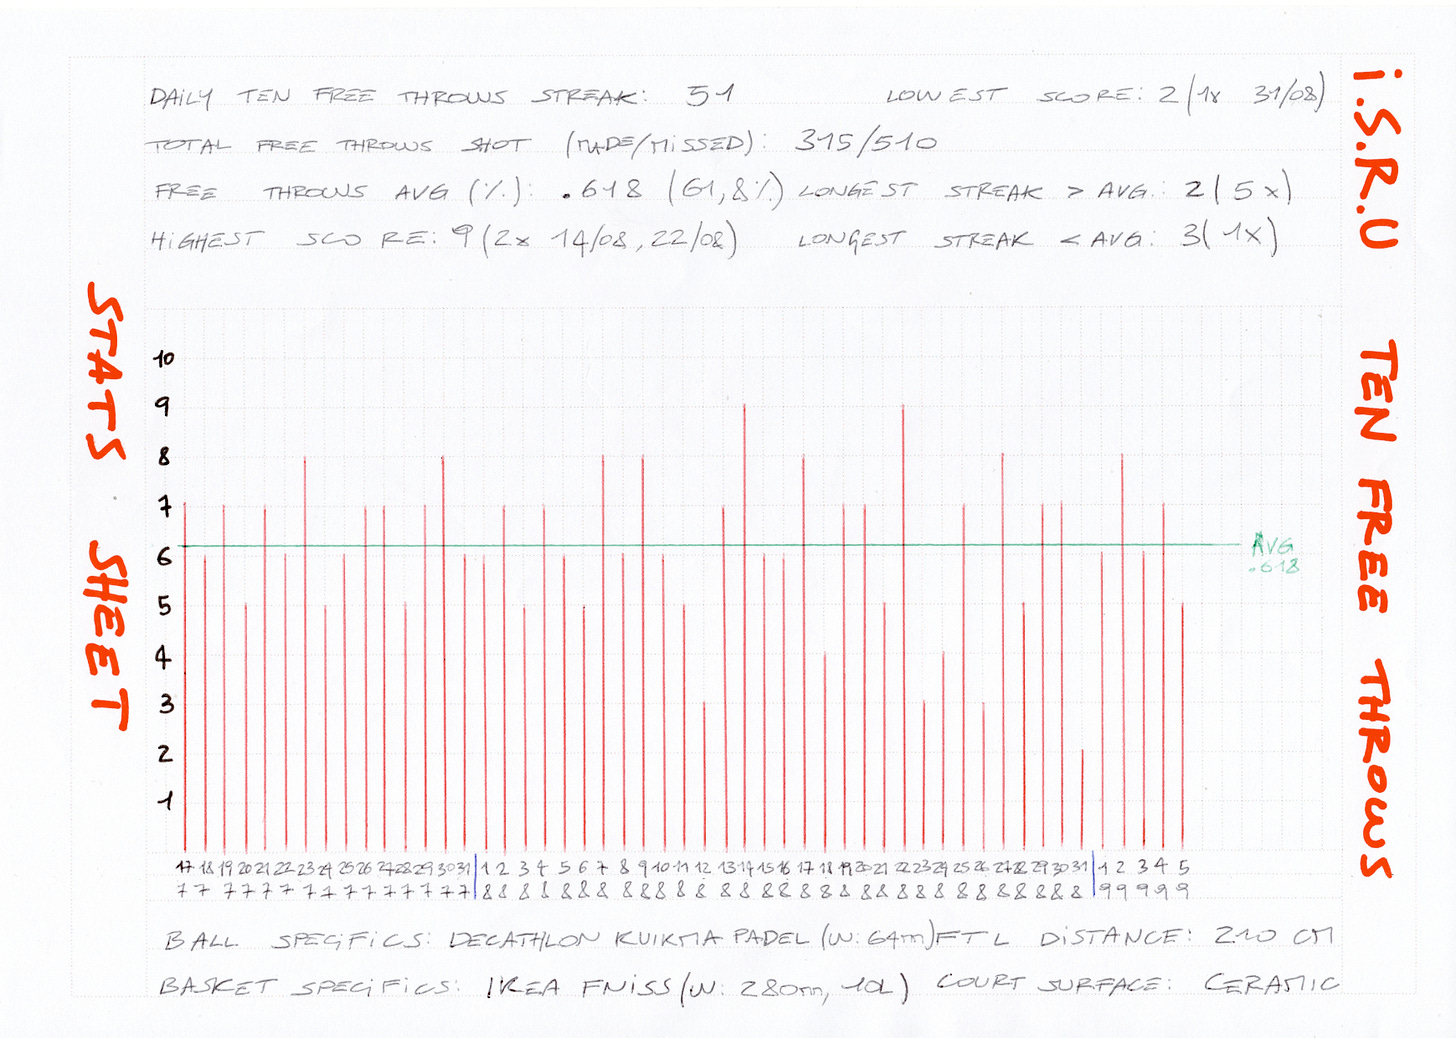 DAILY TEN FREE THROWS STREAK: 51 LOWEST SCORE: 2 (1x 31/08)
TOTAL FREE THROWS SHOT (MADE/MISSED): 315/510
FREE THROWS AVG (%): .618 (61,8%) LONGEST STREAK > AVG.: 2 (5x)
HIGHEST SCORE: 9 (2x 14/08, 22/08) LONGEST STREAK < AVG: 3 (1x)
i.S.R.U TEN FREE THROWS
STATS SHEET
10
9
8
7
6
5
4
3
2
1
AVG
.618
17 18 19 20 21 22 23 24 25 26 27 28 29 30 31 1 2 3 4 5 6 7 8 9 10 11 12 13 14 15 16 17 18 19 20 21 22 23 24 25 26 27 28 29 30 31 1 2 3 4 5
7 7 7 7 7 7 7 7 7 7 7 7 7 7 7 8 8 8 8 8 8 8 8 8 8 8 8 8 8 8 8 8 8 8 8 8 8 8 8 8 8 8 8 8 8 8 9 9 9 9 9
BALL SPECIFICS: DECATHLON KUIKMA PADEL (W: 64m) FTL DISTANCE: 210 CM
BASKET SPECIFICS: IKEA FNISS (W: 280m, 10L) COURT SURFACE: CERAMIC